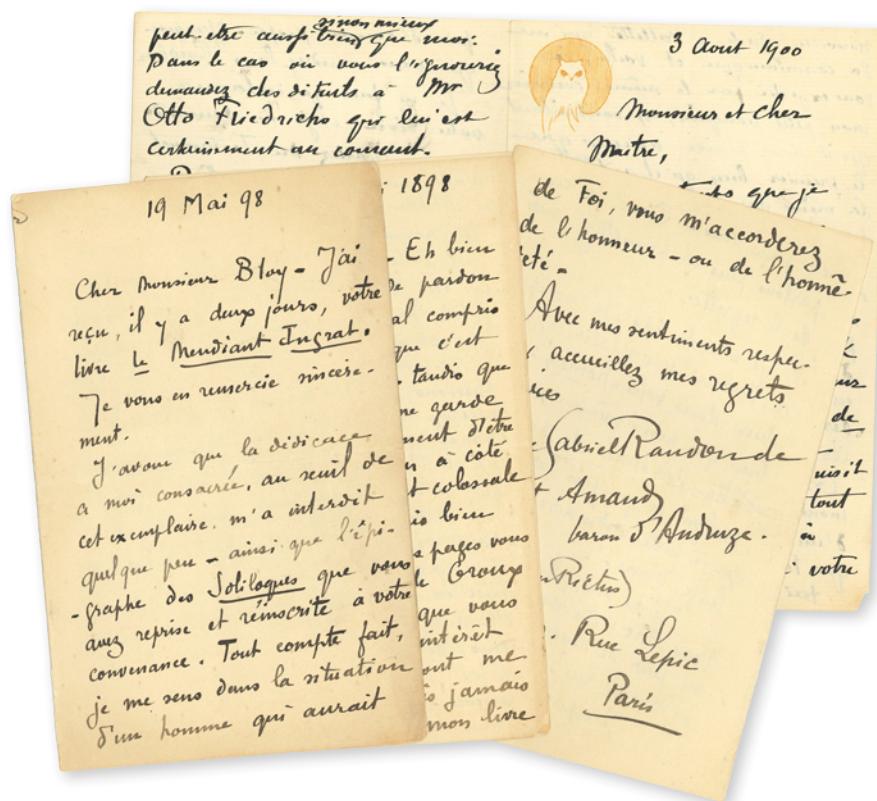 peut-être aussi bien que moi.
sinon mieux
Dans le cas où vous l'ignoreriez
demandez des détails à Mr
Otto Friedrichs qui lui est
certainement au courant.
3 Aout 1900
Monsieur et cher
Maître,
que je
19 Mai 98
Cher Monsieur Bloy - J'ai
reçu, il y a deux jours, votre
livre le Mendiant Ingrat.
Je vous en remercie sincère-
ment.
J'avoue que la dédicace
a moi consacrée, au seuil de
cet exemplaire, m'a interdit
quelque peu - ainsi que l'épi-
-graphe des Soliloques que vous
avez reprise et réinscrite à votre
convenance. Tout compte fait,
je me sens dans la situation
d'un homme qui aurait
1898
- Eh bien
de pardon
al compris
que c'est
tandis que
me garde
ment d'être
à côté
t colossale
bien
pages vous
de Groux
que vous
intérêt
ont me
jamais
mon livre
de Foi, vous m'accorderez
de l'honneur - ou de l'honnê-
eté -
Avec mes sentiments respec-
accueillez mes regrets
Gabriel Randon de
t Amand
baron d'Anduze.
Rictus)
Rue Lepic
Paris
ur
de
uisit
tout
à
votre